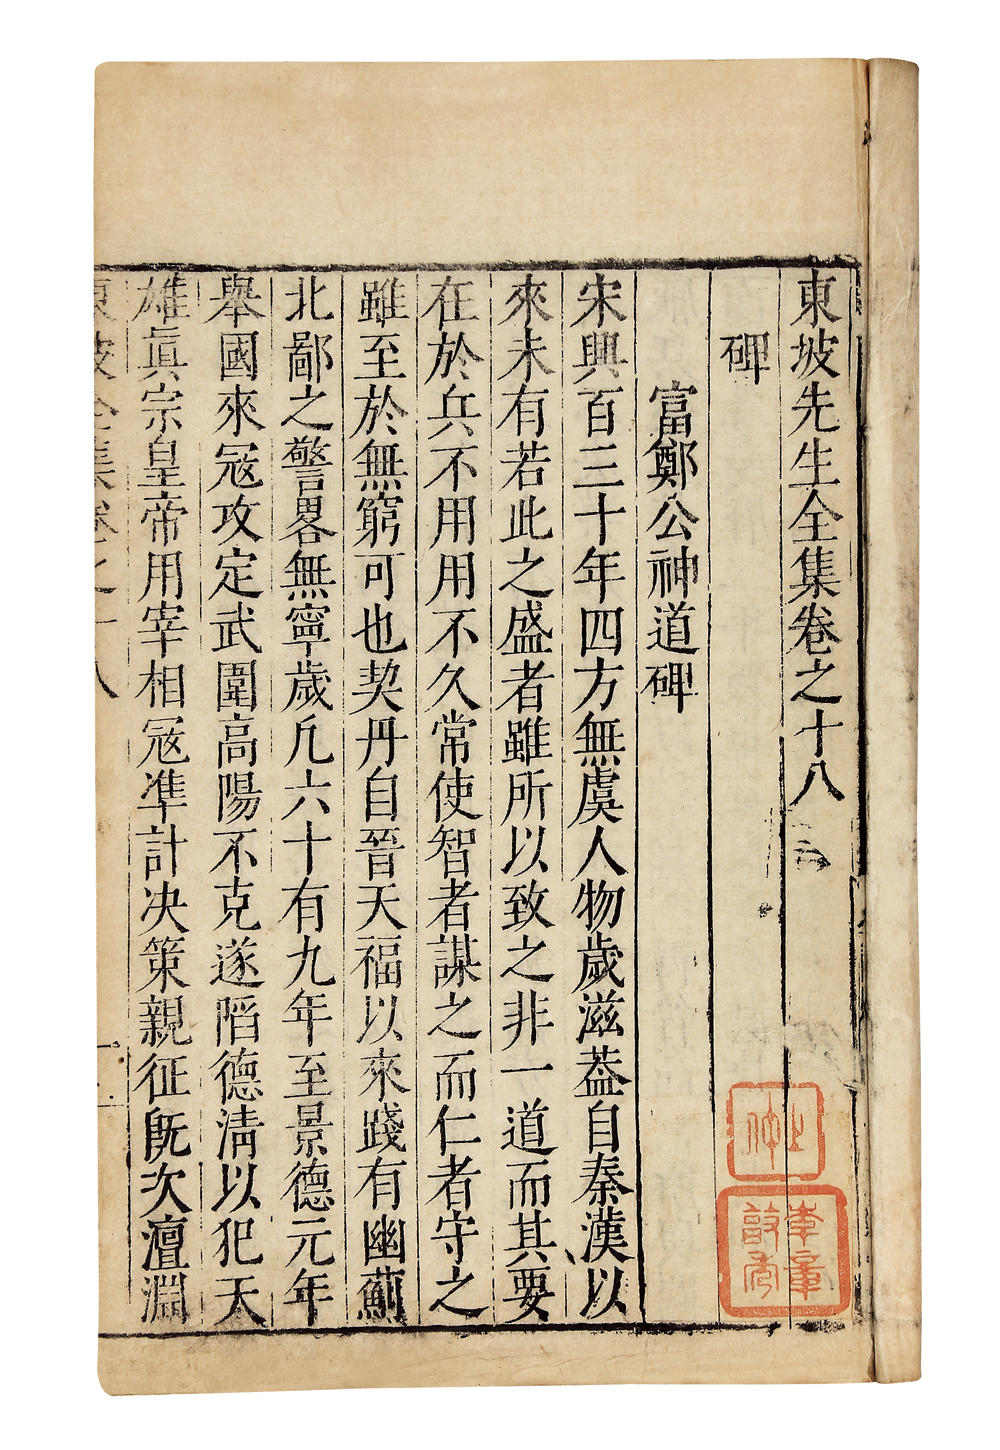 東坡先生全集卷之十八
碑
富鄭公神道碑
宋興百三十年四方無虞人物歲滋葢自秦漢以
來未有若此之盛者雖所以致之非一道而其要
在於兵不用用不久常使智者謀之而仁者守之
雖至於無窮可也契丹自晉天福以來踐有幽薊
北鄙之警畧無寧歲凢六十有九年至景德元年
舉國來冦攻定武圍高陽不克遂陷德淸以犯天
雄眞宗皇帝用宰相冦準計决策親征旣次澶淵
東坡全集卷之十八